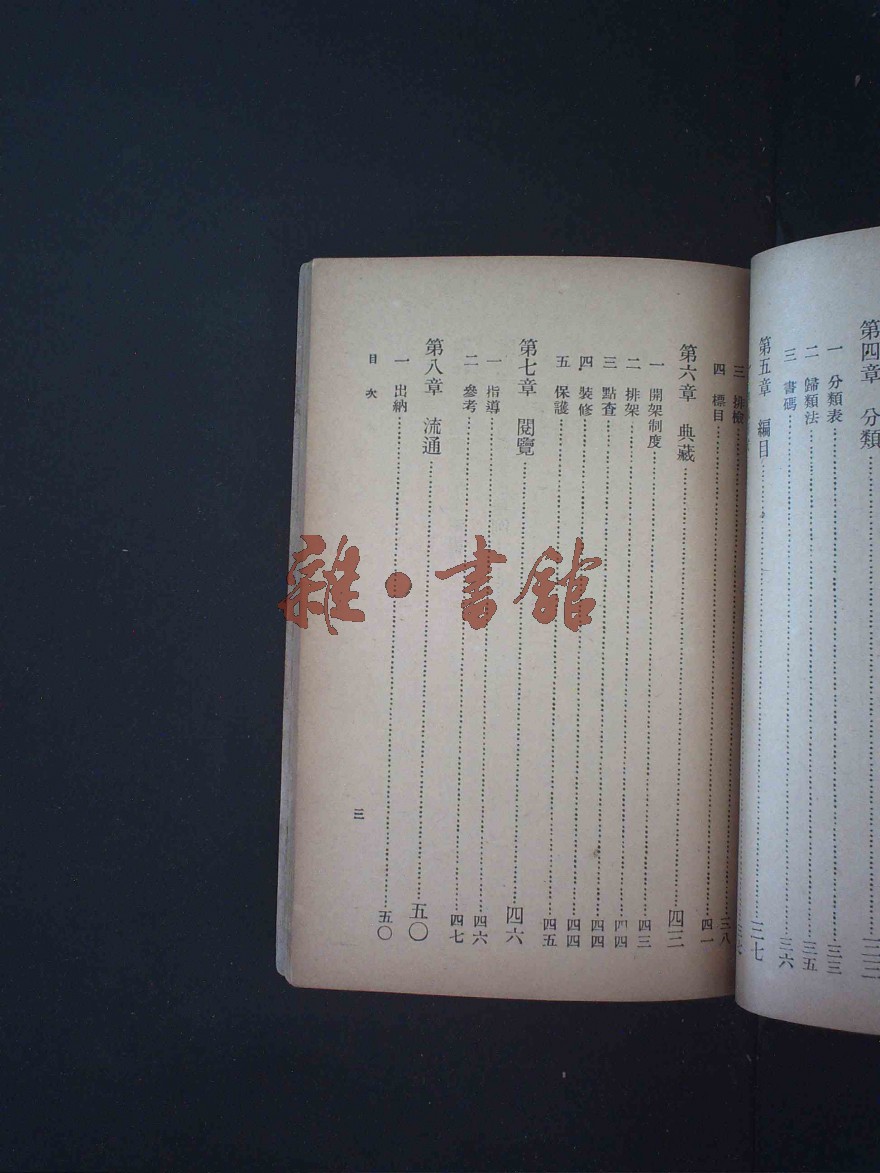 第四章 分類……三三
一 分類表……三三
二 歸類法……三五
三 書碼……三六
第五章 編目……三七
三 排檢……三八
四 標目……四一
第六章 典藏……四三
一 開架制度……四三
二 排架……四四
三 點查……四四
四 裝修……四四
五 保護……四五
第七章 閱覽……四六
一 指導……四六
二 參考……四七
第八章 流通……五〇
一 出納……五〇
目次
三
雜·書館